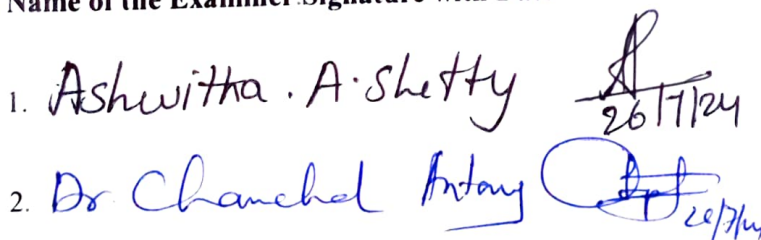 Name of the Examiner Signature with
1. Ashwitha . A. Shetty 26/7/24
2. Dr Chanchal Antony 26/7/24